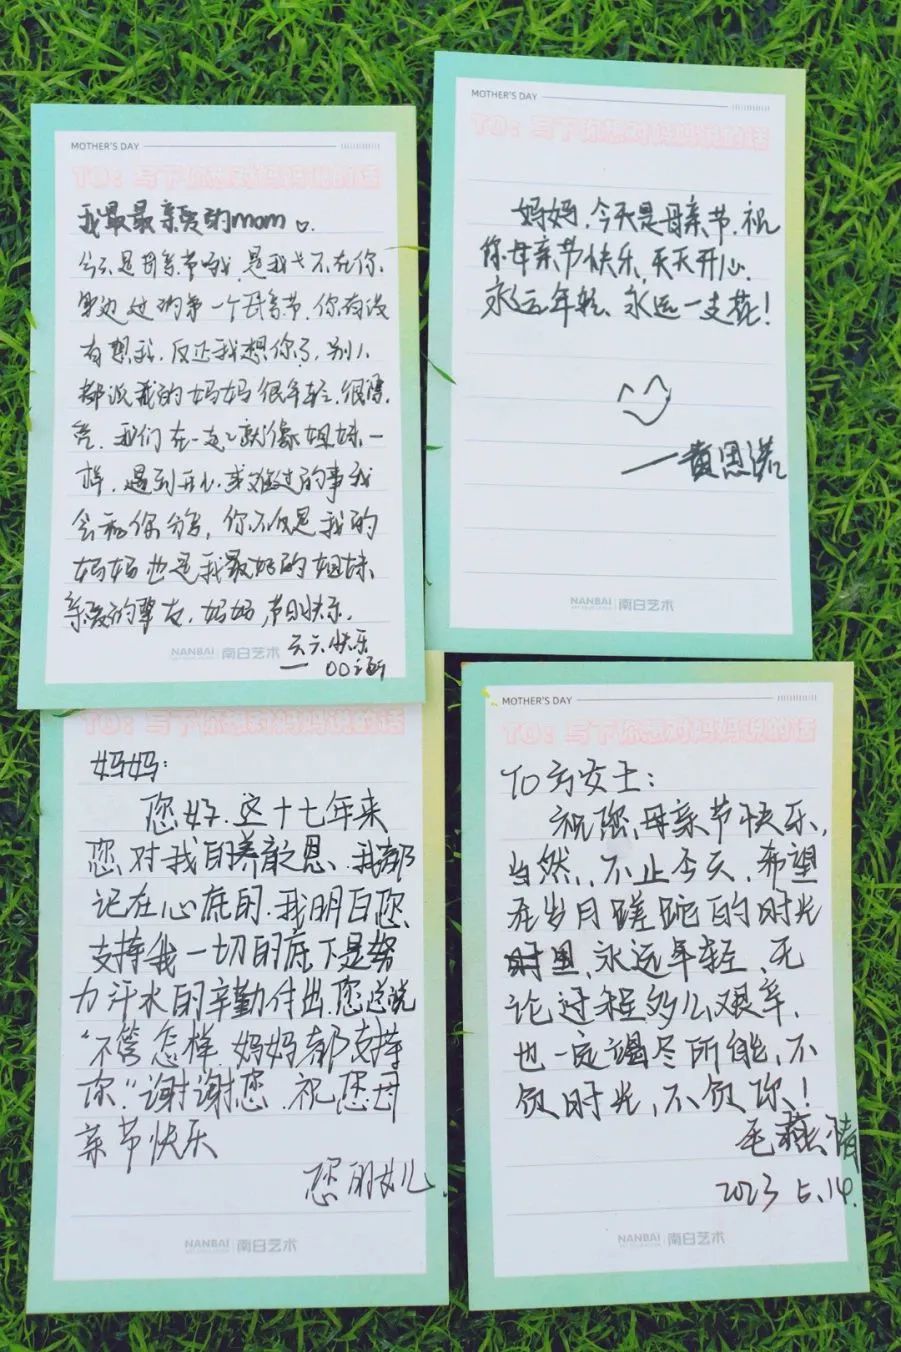 MOTHER'S DAY
TO：写下你想对妈妈说的话
我最最亲爱的mom
今天是母亲节哦,是我不在你
身边过的第一个母亲节,你有没
有想我,反正我想你了,别人
都说我的妈妈很年轻,很漂
亮,我们在一起就像姐妹一
样,遇到开心或难过的事我
会和你分享,你不仅是我的
妈妈也是我最好的姐妹、
亲爱的挚友,妈妈,节日快乐.
天天快乐
NANBAI 南白艺术
MOTHER'S DAY
TO：写下你想对妈妈说的话
妈妈,今天是母亲节,祝
你母亲节快乐,天天开心,
永远年轻、永远一支花!
—黄恩诺
NANBAI 南白艺术
TO：写下你想对妈妈说的话
妈妈:
您好.这十七年来
您对我的养育之恩、我都
记在心底的.我明白您
支持我一切的底下是努
力汗水的辛勤付出.您总说
"不管怎样,妈妈都支持
你."谢谢您.祝您母
亲节快乐
您的女儿.
NANBAI 南白艺术
MOTHER'S DAY
TO：写下你想对妈妈说的话
To 女士:
祝您,母亲节快乐,
当然,不止今天,希望
在岁月蹉跎的时光
里,永远年轻,无
论过程多么艰辛,
也一定竭尽所能,不
负时光,不负你!
毛燕情
2023 5.14.
NANBAI 南白艺术